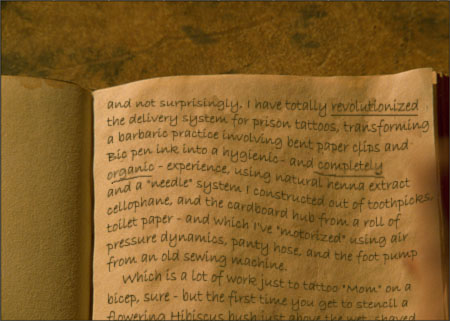 and not surprisingly. I have totally revolutionized
the delivery system for prison tattoos, transforming
a barbaric practice involving bent paper clips and
Bic pen ink into a hygienic - and completely
organic - experience, using natural henna extract
and a "needle" system I constructed out of toothpicks,
cellophane, and the cardboard hub from a roll of
toilet paper - and which I've "motorized" using air
pressure dynamics, panty hose, and the foot pump
from an old sewing machine.
Which is a lot of work just to tattoo "Mom" on a
bicep, sure - but the first time you get to stencil a
flowering Hibiscus bush just above the wet, shaved